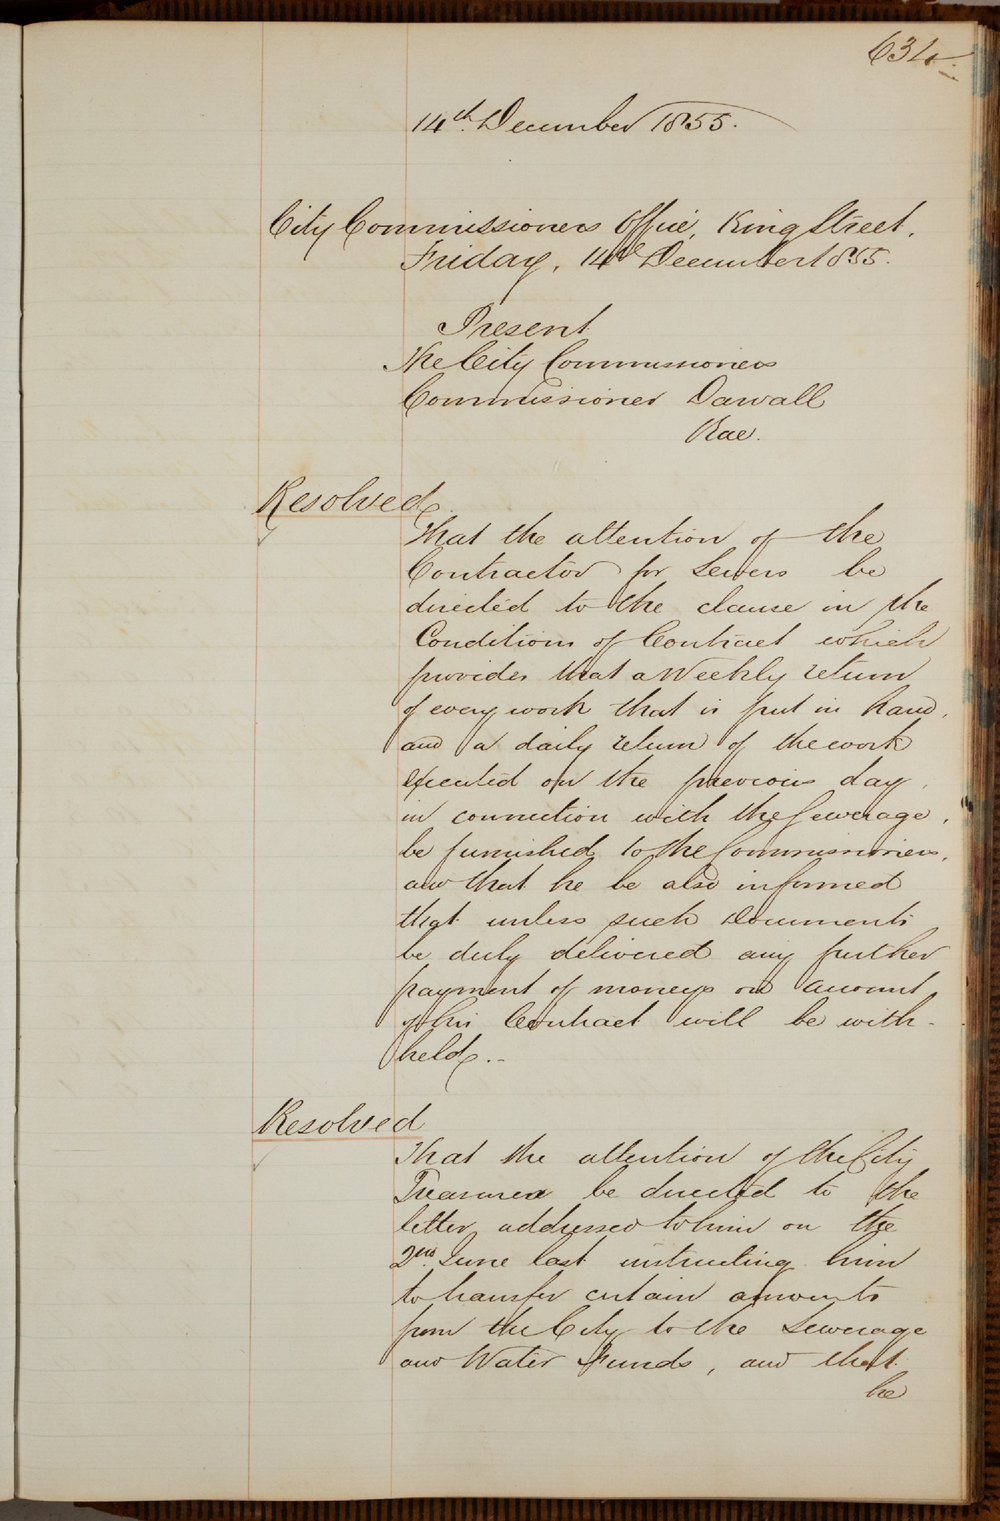 634
14th December 1855.
City Commissioners Office, King Street,
Friday, 14th December 1855.
Present
The City Commissioners
Commissioner Darvall
Rae.
Resolved
That the attention of the
Contractor for Sewers be
directed to the clause in the
Conditions of Contract which
provides that a Weekly return
of every work that is put in hand,
and a daily return of the work
executed on the previous day,
in connection with the Sewerage,
be furnished to the Commissioners,
and that he be also informed
that unless such Documents
be duly delivered any further
payment of moneys on account
of his Contract will be with-
held.-
Resolved
That the attention of the City
Treasurer be directed to the
letter addressed to him on the
2nd June last instructing him
to transfer certain amounts
from the City to the Sewerage
and Water Funds, and that
he